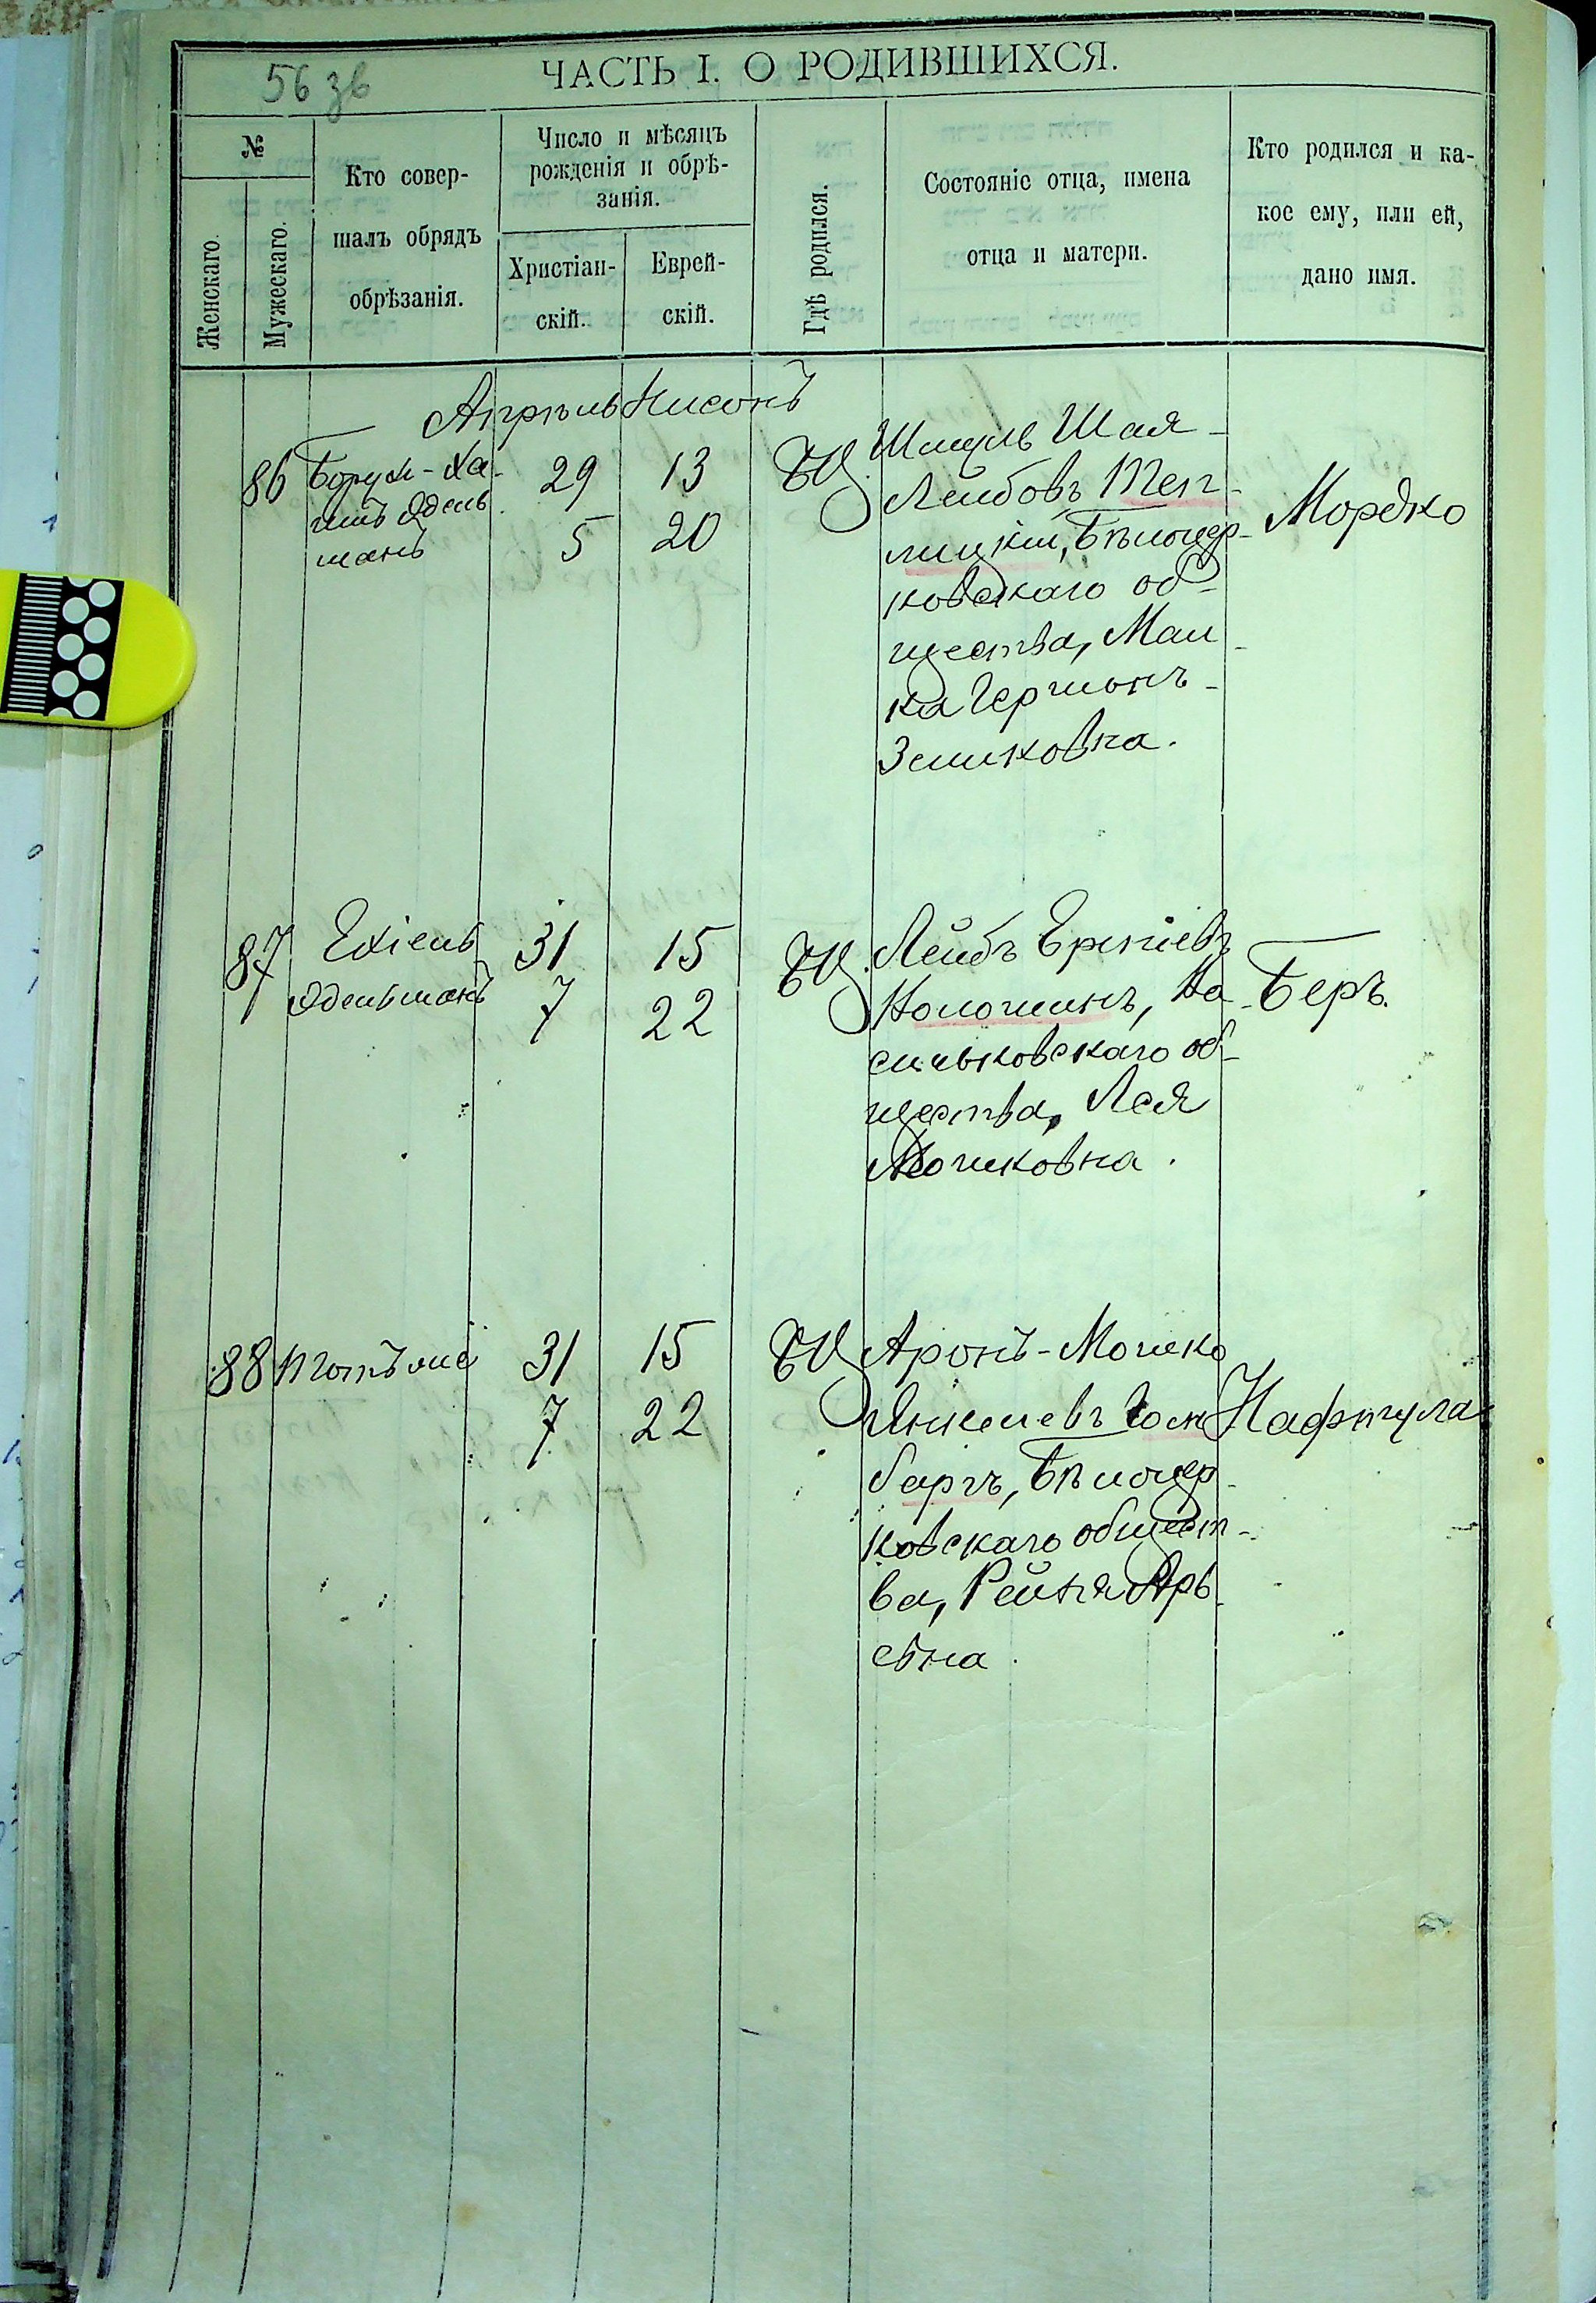 56 зв
ЧАСТЬ I. О РОДИВШИХСЯ.
№
Женскаго.
Мужескаго.
Кто совер-
шалъ обрядъ
обрѣзанія.
Число и мѣсяцъ
рожденія и обрѣ-
занія.
Христіан-
скій.
Еврей-
скій.
Гдѣ родился.
Состояніе отца, имена
отца и матери.
Кто родился и ка-
кое ему, или ей,
дано имя.
Апрѣль Нисонъ
86
Борух-Ха-
имъ Эдель
манъ
29
5
13
20
БЦ
Шмуль Шая-
Лейбовъ Теп-
лицкій, Бѣлоцер-
ковскаго об-
щества, Мал-
ка Гершонъ-
Зейликовна.
Мордко
87
Ехіель
Эдельманъ
31
7
15
22
БЦ
Лейбъ
Ва-
сильковскаго об-
щества, Лея
Мошковна.
Беръ.
88
31
7
15
22
БЦ
Аронъ-Мошко
Янкелевъ Голд
бергъ, Бѣлоцер-
ковскаго общест-
ва, Рейзя Арь
евна.
Нафтула